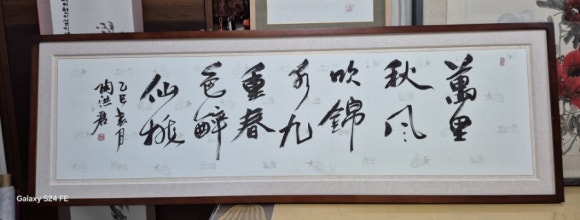 萬里
秋風
吹錦
水九
重春
色醉
仙桃
乙巳月
陶洪君
Galaxy S24 FE